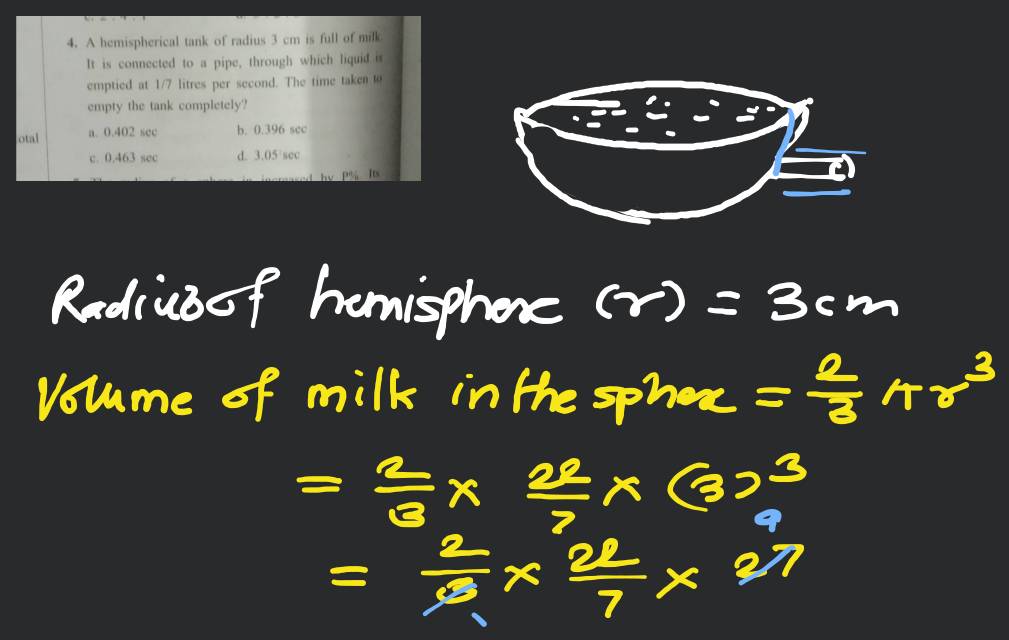 4. A hemispherical tank of radius 3 cm is full of milk.
It is connected to a pipe, through which liquid is
emptied at 1/7 litres per second. The time taken to
empty the tank completely?
a. 0.402 sec b. 0.396 sec
otal
c. 0.463 sec d. 3.05 sec
is increased by P%. Its
Radius of hemisphere (r) = 3cm
Volume of milk in the sphere = 2/3 πr³
= 2/3 × 22/7 × (3)³
9
= 2/3 × 22/7 × 27